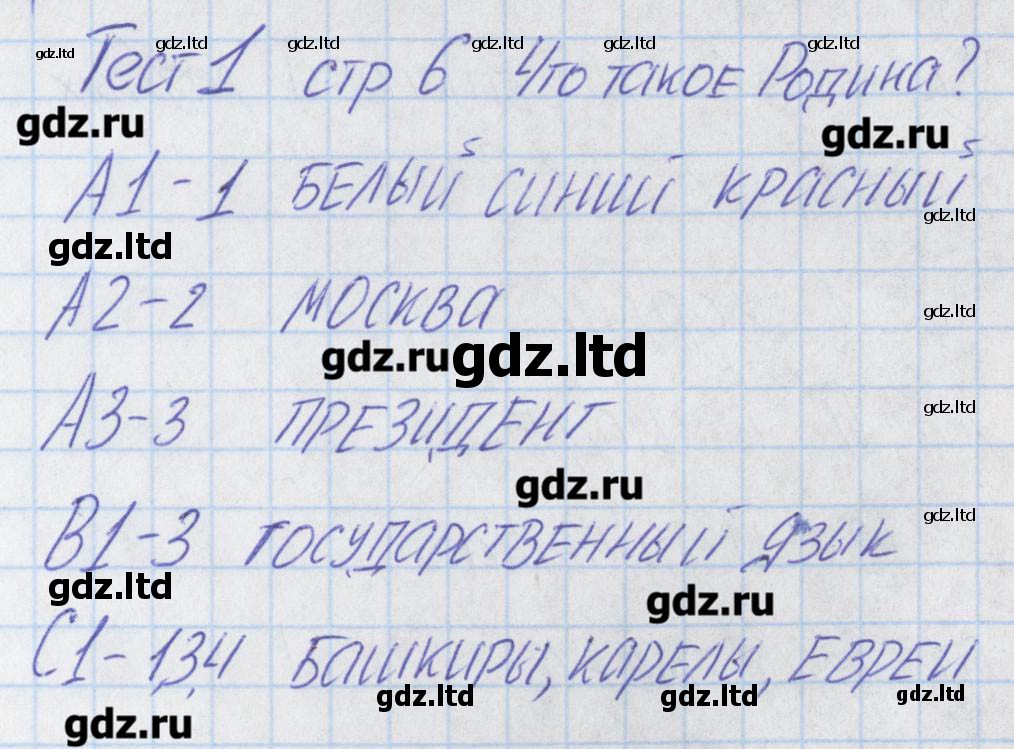 gdz.ltd gdz.ltd gdz.ltd gdz.ltd gdz.ltd gdz.ltd
Тест 1 стр 6 Что такое Родина?
gdz.ru gdz.ru
А1-1 БЕЛЫЙ СИНИЙ КРАСНЫЙ
gdz.ltd gdz.ltd
А2-2 МОСКВА
gdz.ltd
gdz.ru gdz.ltd
А3-3 ПРЕЗИДЕНТ
gdz.ltd
gdz.ru
В1-3 ГОСУДАРСТВЕННЫЙ ЯЗЫК
gdz.ltd
gdz.ltd gdz.ru
С1-1,3,4 БАШКИРЫ, КАРЕЛЫ, ЕВРЕИ
gdz.ru gdz.ltd gdz.ltd gdz.ltd